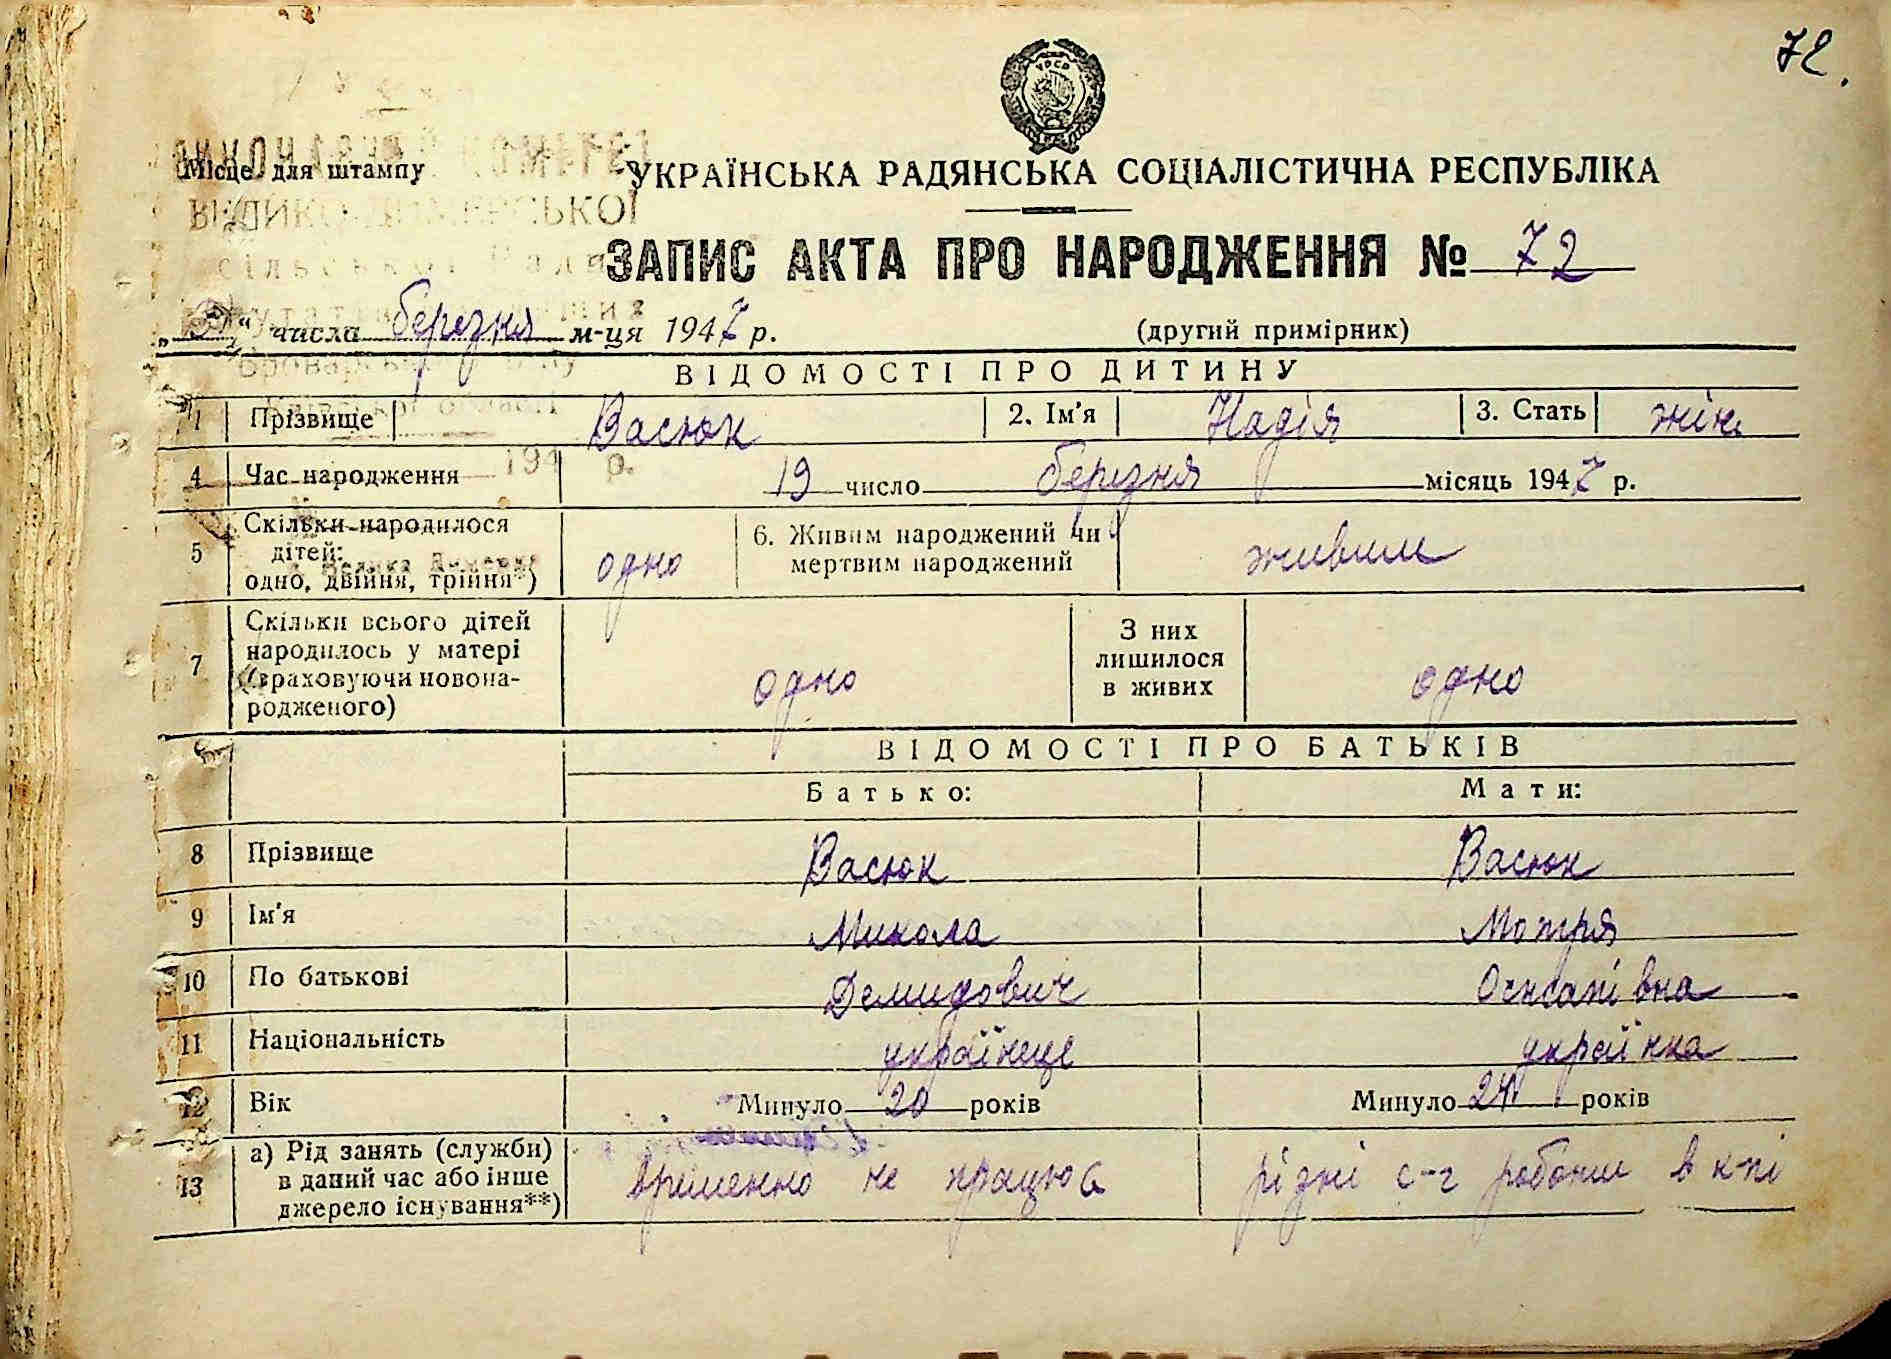 72.
УРСР
Місце для штампу
УКРАЇНСЬКА РАДЯНСЬКА СОЦІАЛІСТИЧНА РЕСПУБЛІКА
ЗАПИС АКТА ПРО НАРОДЖЕННЯ № 72
числа березня м-ця 1947 р. (другий примірник)
ВІДОМОСТІ ПРО ДИТИНУ
1 Прізвище Васюк 2. Ім'я Надія 3. Стать жін.
4 Час народження 19 число березня місяць 1947 р.
194 р.
5 Скільки народилося дітей: одно, двійня, трійня*) одно 6. Живим народжений чи мертвим народжений живим
7 Скільки всього дітей народилось у матері (враховуючи новонародженого) одно З них лишилося в живих одно
ВІДОМОСТІ ПРО БАТЬКІВ
Батько: Мати:
8 Прізвище Васюк Васюк
9 Ім'я Микола Мотря
10 По батькові Демидович
11 Національність українець українка
12 Вік Минуло 20 років Минуло 24 років
13 а) Рід занять (служби) в даний час або інше джерело існування**) временно не працює різні с-г роботи в к-пі